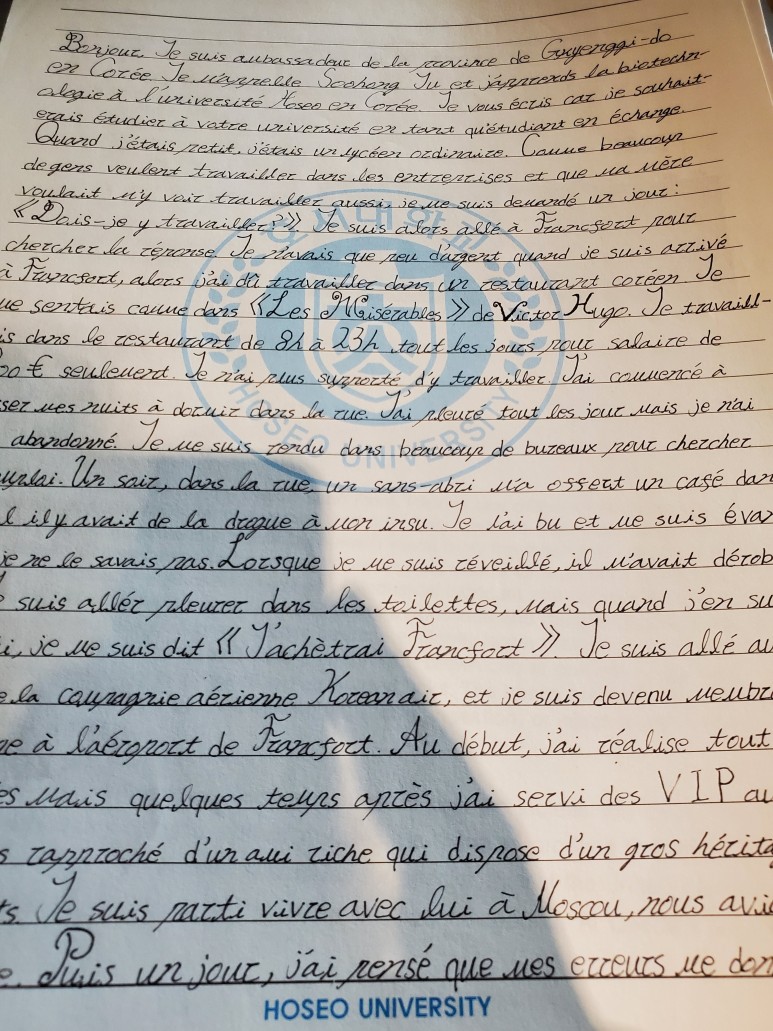 Bonjour. Je suis aubassadeur de la province de Guyenggi-do
en Corée. Je m'appelle Soohong Ju et j'apprends la biotechn-
ologie à l'université Hoseo en Corée. Je vous écris car je souhait-
erais étudier à votre université en tant qu'étudiant en échange.
Quand j'étais petit, j'étais un lycéen ordinaire. Comme beaucoup
de gens veulent travailler dans les entreprises et que ma mère
voulait m'y voir travailler aussi, je me suis demandé un jour:
《Dois-je y travailler?》. Je suis alors allé à Francfort pour
chercher la réponse. Je n'avais que peu d'argent quand je suis arrivé
à Francfort, alors j'ai dû travailler dans un restaurant coréen. Je
me sentais comme dans 《Les Misérables》 de Victor Hugo. Je travaill-
is dans le restaurant de 8h à 23h tout les jours pour salaire de
00 € seulement. Je n'ai plus supporté d'y travailler. J'ai commencé à
ser mes nuits à dormir dans la rue. J'ai pleuré tout les jour mais je n'ai
abandonné. Je me suis rendu dans beaucoup de bureaux pour chercher
Un soir, dans la rue, un sans-abri m'a offert un café dan
l il y avait de la drogue à mon insu. Je l'ai bu et me suis éva
je ne le savais pas. Lorsque je me suis réveillé, il m'avait dérob
suis allér pleurer dans les toilettes, mais quand j'en su
i, je me suis dit 《J'achètrai Francfort》. Je suis allé au
e la compagnie aérienne Korean air, et je suis devenu membr
ne à l'aéroport de Francfort. Au début, j'ai réalise tout
es mais quelques temps après j'ai servi des VIP au
s rapproché d'un ami riche qui dispose d'un gros hérita
ts. Je suis parti vivre avec lui à Moscou, nous avi
e. Puis un jour, j'ai pensé que mes erreurs me don
호서대학교
HOSEO UNIVERSITY
HOSEO UNIVERSITY